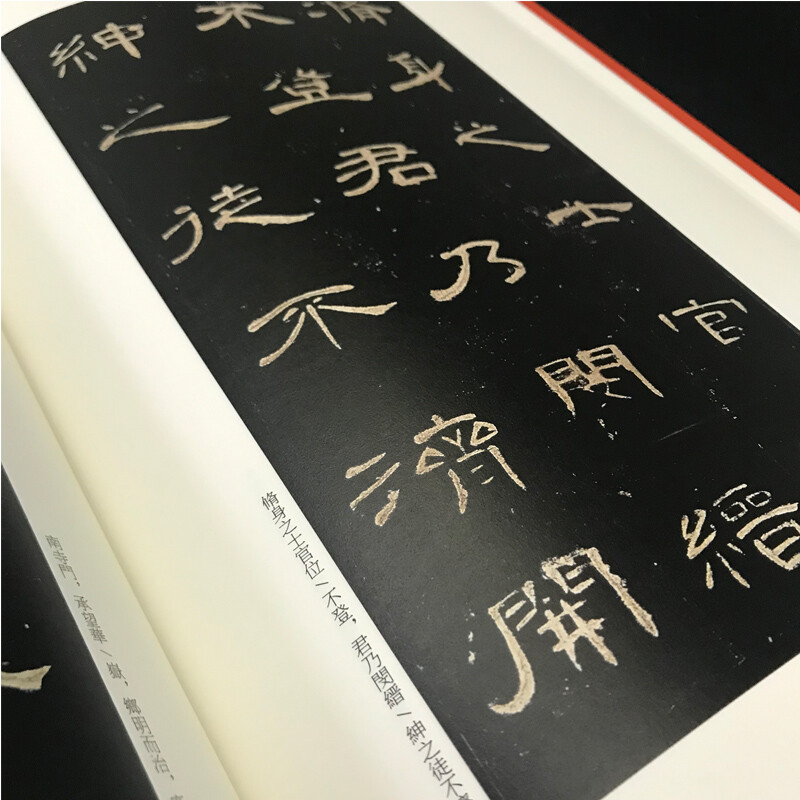 脩身之士官
不登君乃閔縉
紳之徒不濟開
脩身之士官位\不登，君乃閔縉\紳之徒不
南寺門，承望華\嶽，鄉明而治，